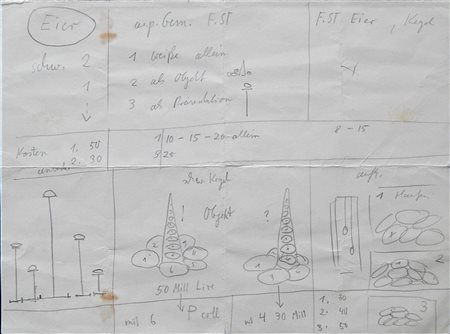 Eier
F. ST
F. ST Eier, Kegel
schw. 2
1
1 weiße allein
2 als Objekt
3 als Präsentation
Kosten 1. 50
2. 30
1 10 - 15 - 20 - allein
8 - 15
schw Kegel
!
Objekt
?
1 Haufen
2
50 Mill Lire
mit 6
P coll
4 30 Mill
1. 30
2. 40
3. 50
3